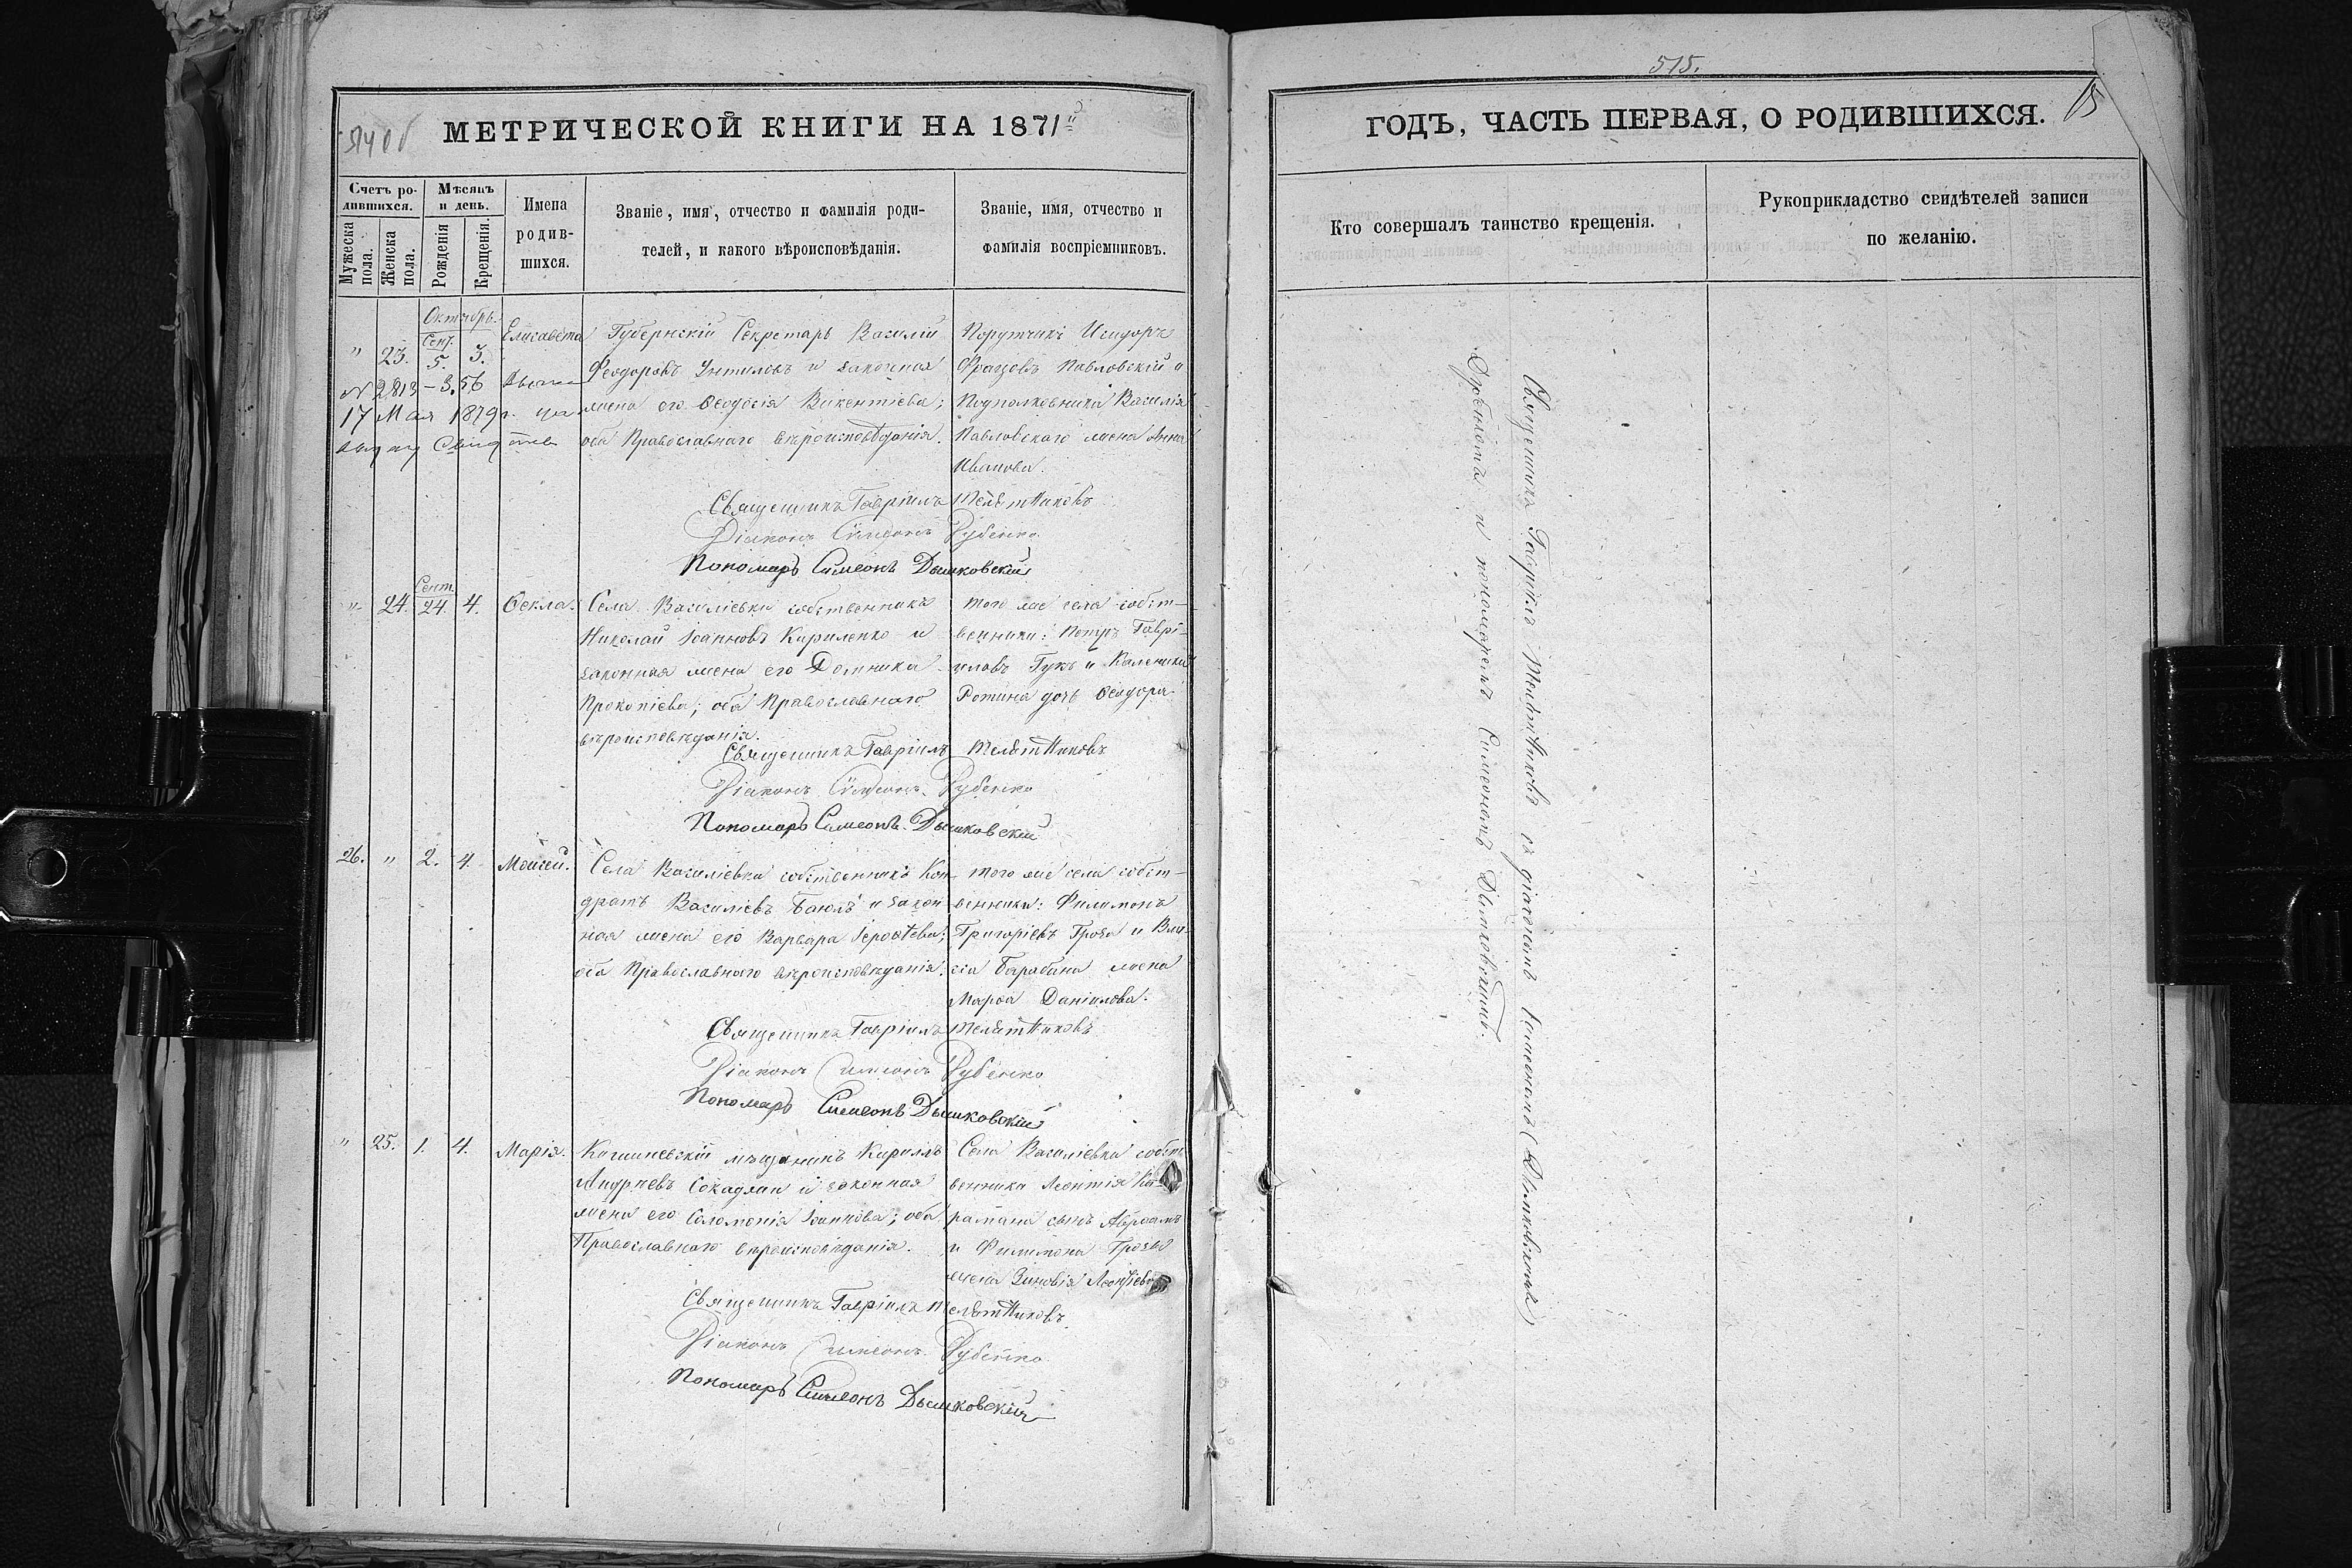 514 об
МЕТРИЧЕСКОЙ КНИГИ НА 1871й
Счетъ ро-
дившихся.
Мѣсяцъ
и день.
Мужеска
пола.
Женска
пола.
Рожденія
Крещенія.
Имена
родив-
шихся.
Званіе, имя, отчество и фамилія роди-
телей, и какого вѣроисповѣданія.
Званіе, имя, отчество и
фамилія воспріемниковъ.
Октябрь.
" 23. Сент. 5. 3. Елисавета
№ 2813
17 Мая 1879 г.
Губернскій Секретарь Василій
Феодоровъ Унтиловъ и законная
жена его Ѳеодосія Викентіева;
оба Православнаго вѣроисповѣданія.
Порутчикъ Исидоръ
Францовъ Павловскій и
Подполковника Василія
Павловскаго жена Анна
Иванова.
Священникъ Гавріилъ Телѣтниковъ
Діаконъ Симеонъ Рубенко
Пономарь Симеонъ Дышковскій
" 24. Сент. 24. 4. Ѳекла.
Села Василіевки собственникъ
Николай Іоанновъ Кириленко и
законная жена его Домника
Прокопіева; оба Православнаго
вѣроисповѣданія.
того же села собст-
венники: Петръ Гаврі-
иловъ Гукъ и Каленика
Ротина дочь Ѳеодора
Священникъ Гавріилъ Телѣтниковъ
Діаконъ Симеонъ Рубенко
Пономарь Симеонъ Дышковскій
26. " 2. 4. Моисей.
Села Василіевки собственникъ Кон-
дратъ Василіевъ Баюлъ и закон
ная жена его Варвара Іероѳѣева;
оба Православнаго вѣроисповѣданія.
того же села собст-
венники: Филимонъ
Григоріевъ Гроза и Вла-
сія Барабана жена
Марѳа Даніилова.
Священникъ Гавріилъ Телѣтниковъ
Діаконъ Симеонъ Рубенко
Пономарь Симеонъ Дышковскій
" 25. 1. 4. Марія.
Кишиневскій мѣщанинъ Кириллъ
Андріевъ Сокадлан и законная
жена его Соломонія Іоаннова; оба
Православнаго вѣроисповѣданія.
Села Василіевки собст
венника Леонтія Ка-
рамана сынъ Авраамъ
и Филимона Грозы
жена Зиновія Леонтіева
Священникъ Гавріилъ Телѣтниковъ
Діаконъ Симеонъ Рубенко
Пономарь Симеонъ Дышковскій
515.
15
ГОДЪ, ЧАСТЬ ПЕРВАЯ, О РОДИВШИХСЯ.
Кто совершалъ таинство крещенія.
Рукоприкладство свидѣтелей записи
по желанію.
Священникъ Гавріилъ Телѣтниковъ съ діакономъ Симеономъ
и пономаремъ Симеономъ Дышковскимъ.